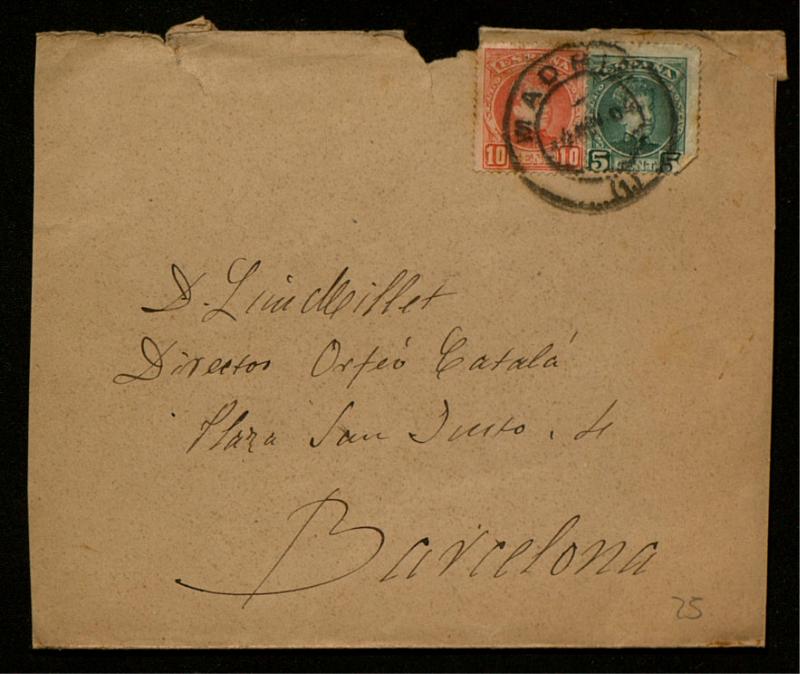 ESPAÑA ESPAÑA
MADRID
04
10 CENT 10 5 CENT 5
(1)
D. Lluis Millet
Director Orfeó Catalá
Plaza San Justo. 4
Barcelona
25